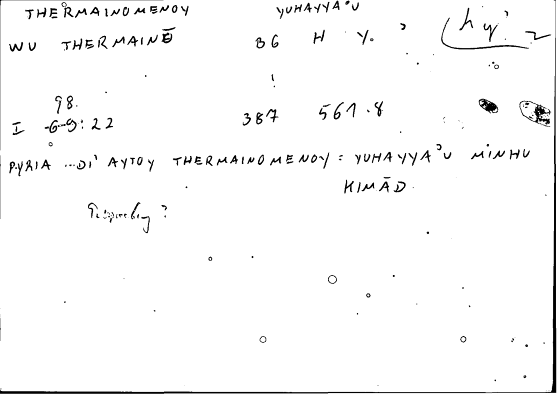 THERMAINOMENOY YUHAYYAʾU
WU THERMAINŌ BG H Y. ʾ hyʾ 2
!
98.
I 69:22 387 561.8
PYRIA ...DIʾ AYTOY THERMAINOMENOY = YUHAYYAʾU MINHU
KIMĀD
?